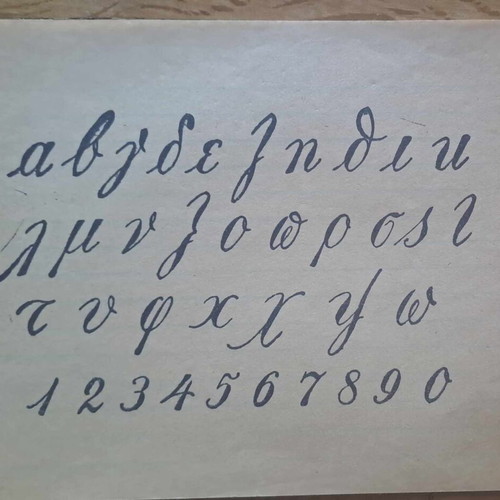 α β γ δ ε ζ η ϑ ι κ
λ μ ν ξ ο ϖ ρ σ ς τ
τ υ φ χ χ ψ ω
1 2 3 4 5 6 7 8 9 0